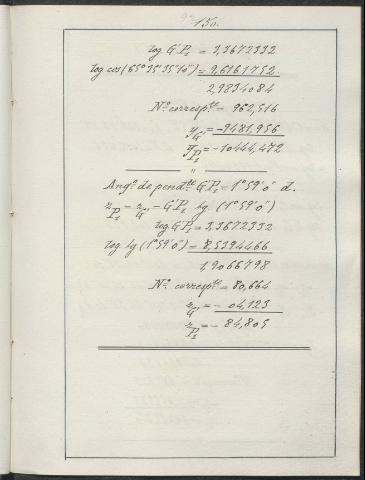 150.
log G'P₂ = 3,3672332
log cos (65° 35' 35" 10''') = 9,6161752
2,9834084
Nº correspᵗᵉ = 962,516
y G' = -9481,956
y P₂ = -10444,472
"
Angº de pendᵗᵉ G'P₂ = 1° 59' 0" d.
z P₂ = z G' - G'P₂ tg (1° 59' 0")
log G'P₂ = 3,3672332
log tg (1° 59' 0") = 8,5394466
1,9066798
Nº correspᵗᵉ = 80,664
z G' = - 04,123
z P₂ = - 84,805